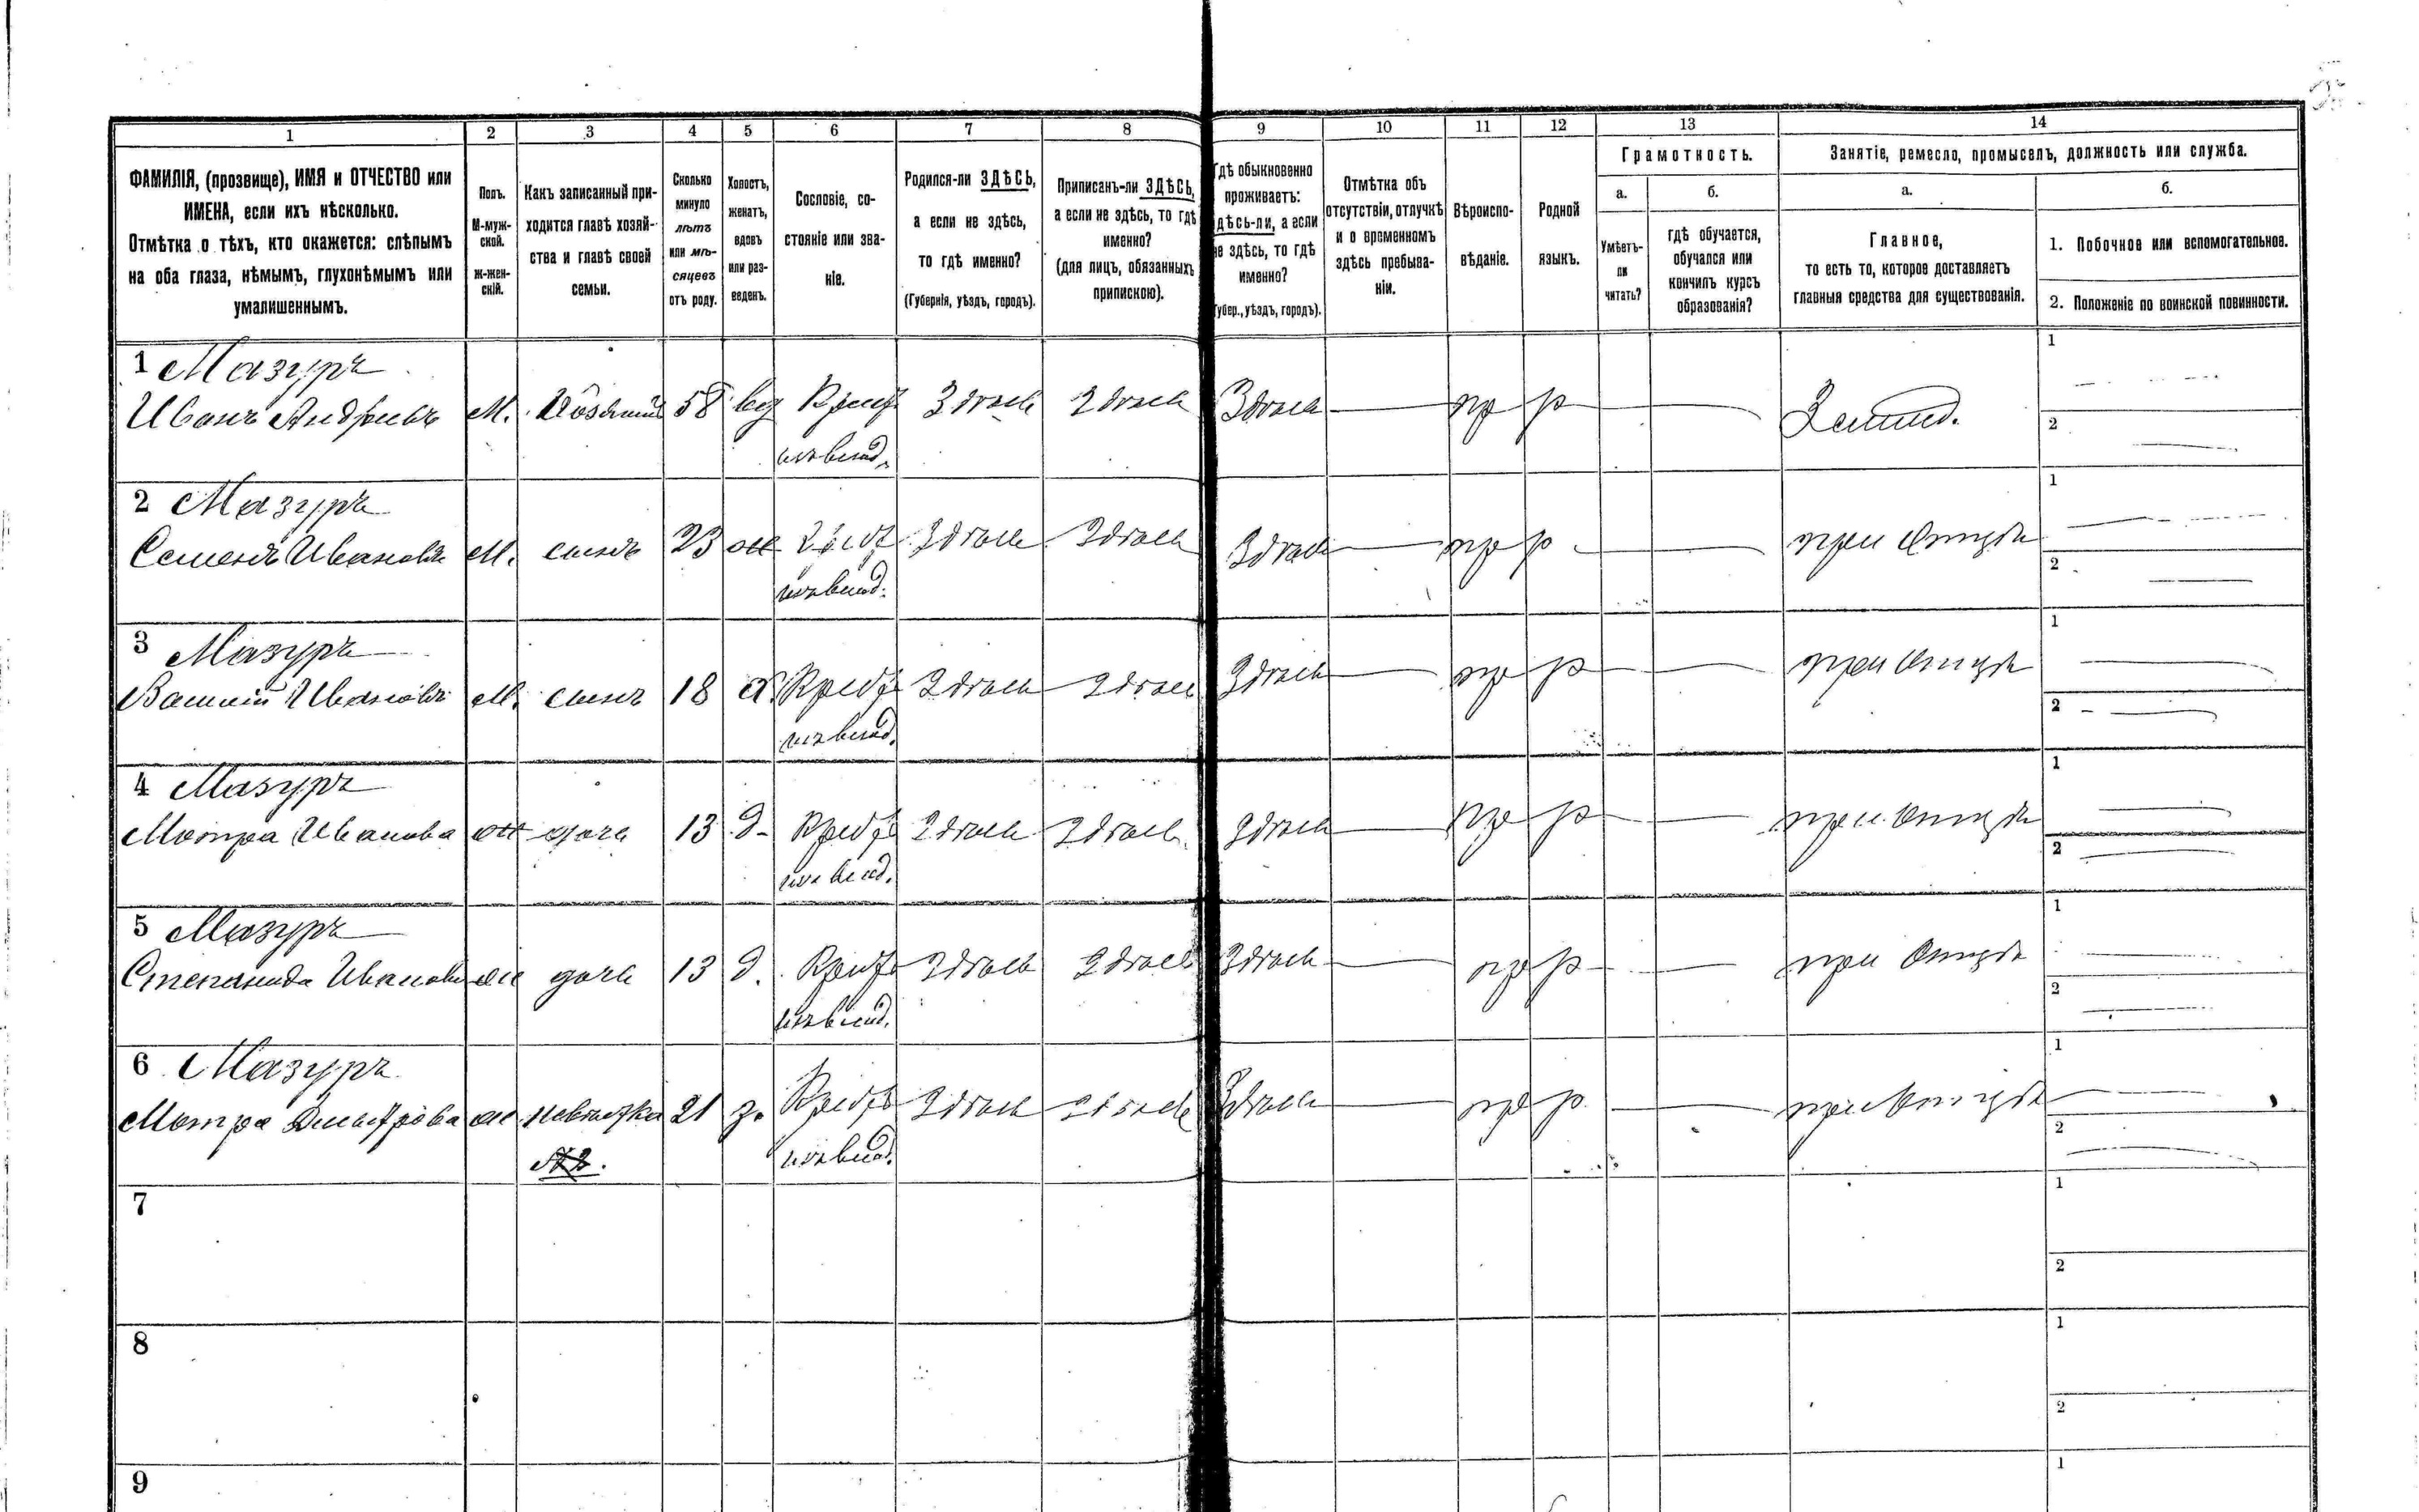 1 2 3 4 5 6 7 8 9 10 11 12 13 14
ФАМИЛІЯ, (прозвище), ИМЯ и ОТЧЕСТВО или
ИМЕНА, если ихъ нѣсколько.
Отмѣтка о тѣхъ, кто окажется: слѣпымъ
на оба глаза, нѣмымъ, глухонѣмымъ или
умалишеннымъ.
Полъ.
М-муж-
ской.
ж-жен-
скій.
Какъ записанный при-
ходится главѣ хозяй-
ства и главѣ своей
семьи.
Сколько
минуло
лѣтъ
или мѣ-
сяцевъ
отъ роду.
Холостъ,
женатъ,
вдовъ
или раз-
веденъ.
Сословіе, со-
стояніе или зва-
ніе.
Родился-ли ЗДѢСЬ,
а если не здѣсь,
то гдѣ именно?
(Губернія, уѣздъ, городъ).
Приписанъ-ли ЗДѢСЬ,
а если не здѣсь, то гдѣ
именно?
(для лицъ, обязанныхъ
припискою).
Гдѣ обыкновенно
проживаетъ:
здѣсь-ли, а если
не здѣсь, то гдѣ
именно?
(Губер., уѣздъ, городъ).
Отмѣтка объ
отсутствіи, отлучкѣ
и о временномъ
здѣсь пребыва-
ніи.
Вѣроиспо-
вѣданіе.
Родной
языкъ.
Грамотность.
а.
Умѣетъ-
ли
читать?
б.
гдѣ обучается,
обучался или
кончилъ курсъ
образованія?
Занятіе, ремесло, промыселъ, должность или служба.
а.
Главное,
то есть то, которое доставляетъ
главныя средства для существованія.
б.
1. Побочное или вспомогательное.
2. Положеніе по воинской повинности.
1 Мазуръ 1
Иванъ Андрѣевъ М. 58 вд Крест Здѣсь Здѣсь Здѣсь пр р Землед. 2
изъ влад.
2 Мазуръ 1
Семенъ Ивановъ М. сынъ 23 ж Крест Здѣсь Здѣсь Здѣсь пр р при отцѣ 2
изъ влад.
3 Мазуръ 1
Василій Ивановъ М. сынъ 18 х. Крест Здѣсь Здѣсь Здѣсь пр р при отцѣ 2
изъ влад.
4 Мазуръ 1
Мотра Иванова ж дочь 13 д. Крест Здѣсь Здѣсь Здѣсь пр р при отцѣ 2
изъ влад.
5 Мазуръ 1
Степанида Иванова ж дочь 13 д. Крест Здѣсь Здѣсь Здѣсь пр р при отцѣ 2
изъ влад.
6 Мазуръ 1
Мотра Дмитрова ж невѣстка 21 з. Крест Здѣсь Здѣсь Здѣсь пр р при отцѣ 2
изъ влад.
7 1
2
8 1
2
9 1